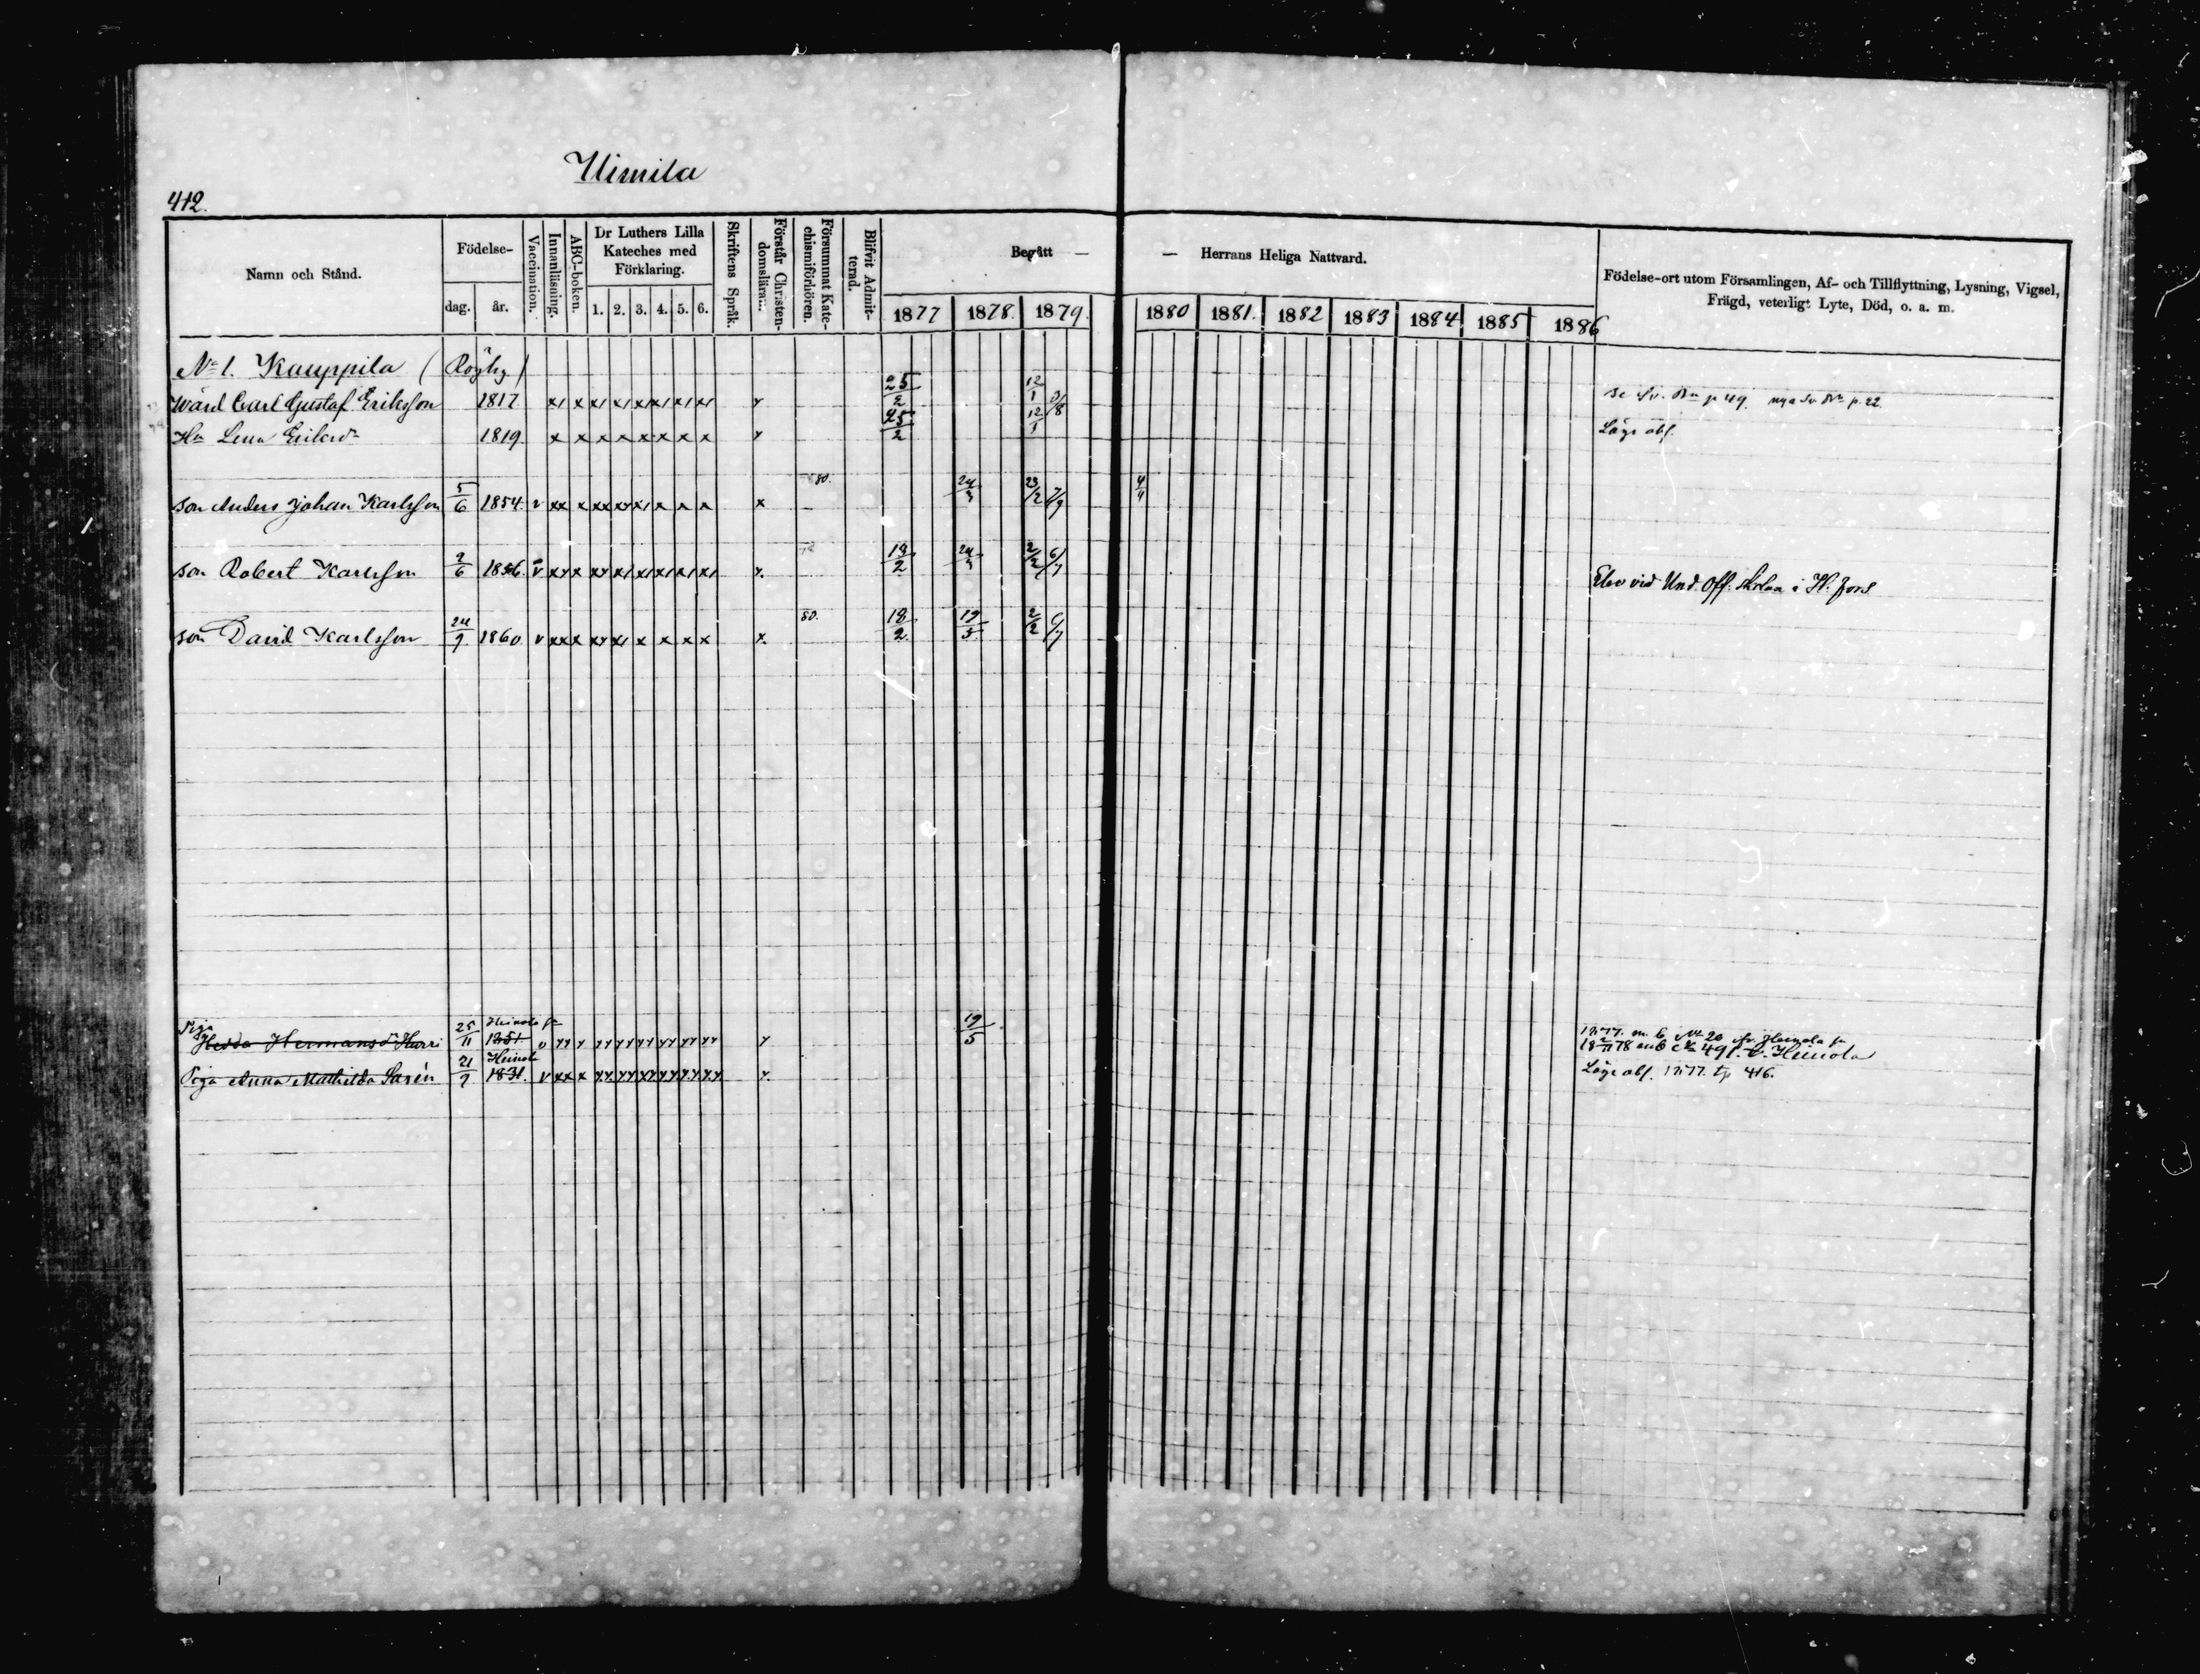 Uimila
412.
Namn och Stånd.
Födelse-
dag.
år.
Vaccination.
Innanläsning.
ABC-boken.
Dr Luthers Lilla
Kateches med
Förklaring.
1. 2. 3. 4. 5. 6.
Skriftens Språk.
Förstår Christen-
domslära
Försummat Kate-
chismiförhören.
Blifvit Admit-
terad.
Begått — — Herrans Heliga Nattvard.
1877 1878. 1879. 1880 1881. 1882 1883 1884 1885 1886
Födelse-ort utom Församlingen, Af- och Tillflyttning, Lysning, Vigsel,
Frägd, veterligt Lyte, Död, o. a. m.
No 1. Kauppila (
Wärd Carl Gustaf Eriksson 1817 25/2 12/1 p 49. p. 22.
Hu Lena Eriksdr 1819. 25/2 12/1
son Anders Johan Karlsson 5/6 1854. v x 80. 24/3 23/2 4/4
son Robert Karlsson 2/6 1856. v 18/2 24/3 2/2 6/7 Elev vid Und. Off. skolan i H:fors
son David Karlsson 24/9 1860 v x 80. 18/2 19/5 2/2 6/7
Piga Hedda Hermansdr Harri 25/11 Heinola 1851 v 19/5 1877. No 20 fr. Heinola
18 2/11 78 49 t. Heinola
Piga Anna Mathilda Sarén 21/9 Heinola 1831. v 1877. tp 416.